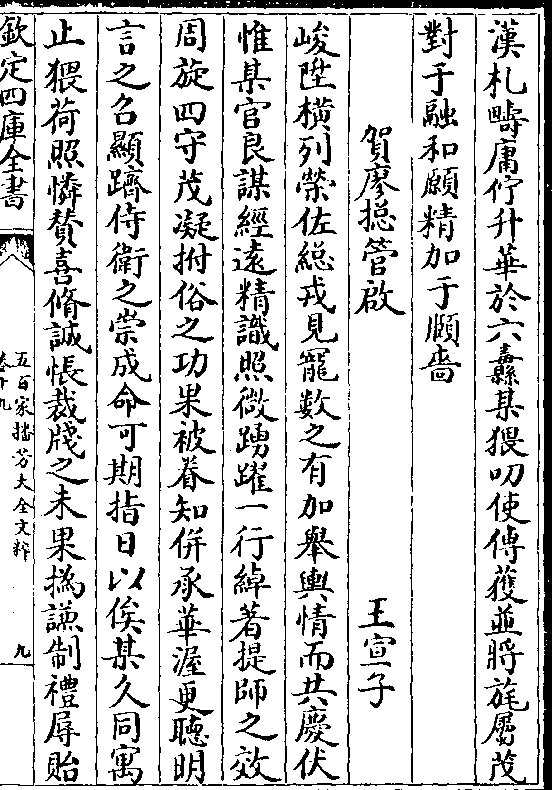 漢札疇庸佇升華於六纛某猥叨使傳獲並將旄屬茂
對于融和願精加于頤嗇
賀廖摠管啟
王宣子
峻陞橫列榮佐總戎見寵數之有加舉輿情而共慶伏
惟某官良謀經遠精識照微踴躍一行綽著提師之效
周旋四守茂凝拊俗之功果被眷知併承華渥更聰明
言之召顯躋侍衛之崇成命可期指日以俟某久同寓
止猥荷照憐賛喜脩誠悵裁牋之未果撝謙制禮辱貽
欽定四庫全書
五百家播芳大全文粹
卷十九
九